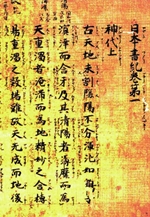 日本書紀巻第一
神代上
古天地未剖陰陽不分渾沌如鶏子
溟涬而含牙及其清陽者薄靡而為
天重濁者淹滞而為地精妙之合搏
易重濁之凝竭難故天先成而地後